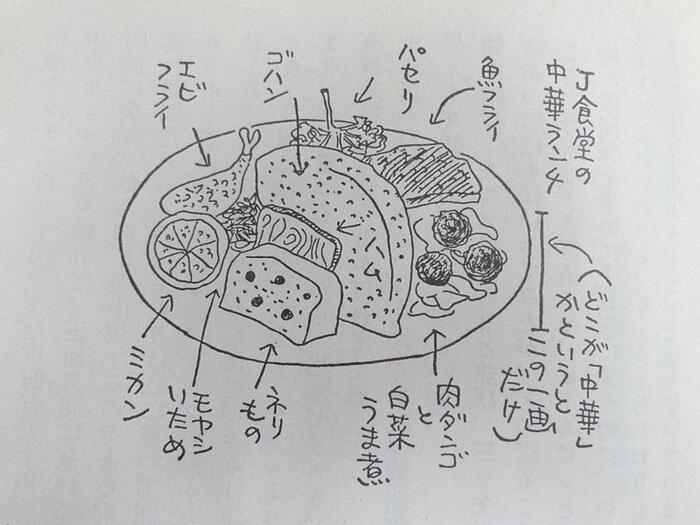 J食堂の
中華ランチ
(どこが「中華」
かというと
この一画
だけ)
魚フライ
パセリ
ゴハン
エビ
フライ
ハム
肉ダンゴ
と
白菜
うま煮
ネリ
もの
モヤシ
いため
ミカン